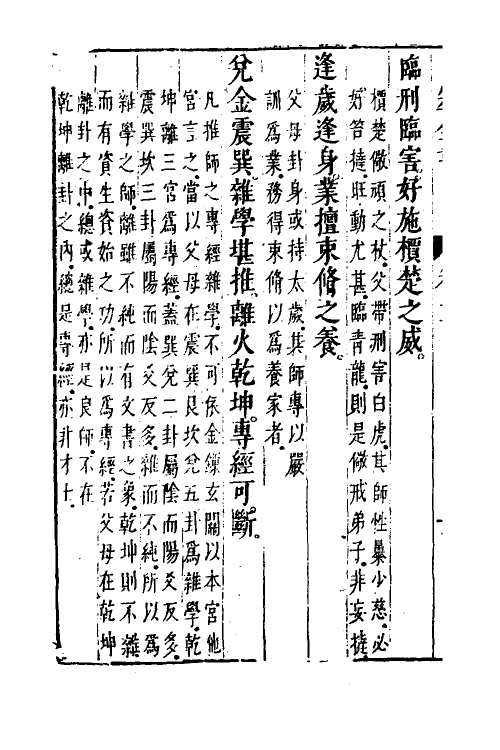 臨刑臨害。好施檟楚之威。
檟楚儆頑之杖。父帶刑害白虎。其師性暴少慈。必
好笞撻。旺動尤甚。臨青龍。則是儆戒弟子。非妄撻。
逢歲逢身。業擅束脩之養。
父母卦身或持太歲。其師專以嚴
訓為業。務得束脩以為養家者。
兌金震巽。雜學堪推。離火乾坤。專經可斷。
凡推師之專經雜學。不可依金鎖玄關以本宮他
宮言之。當以父母在震巽艮坎兌五卦為雜學。乾
坤離三宮為專經。蓋巽兌二卦屬陰而陽爻反多。
震艮坎三卦屬陽而陰爻反多。雜而不純。所以為
雜學之師。離雖不純。而有文書之象。乾坤則不雜
而有資生資始之功。所以為專經。若父母在乾坤
離卦之中。總或雜學。亦是良師。不在
乾坤離卦之內。總是專經。亦非才士。